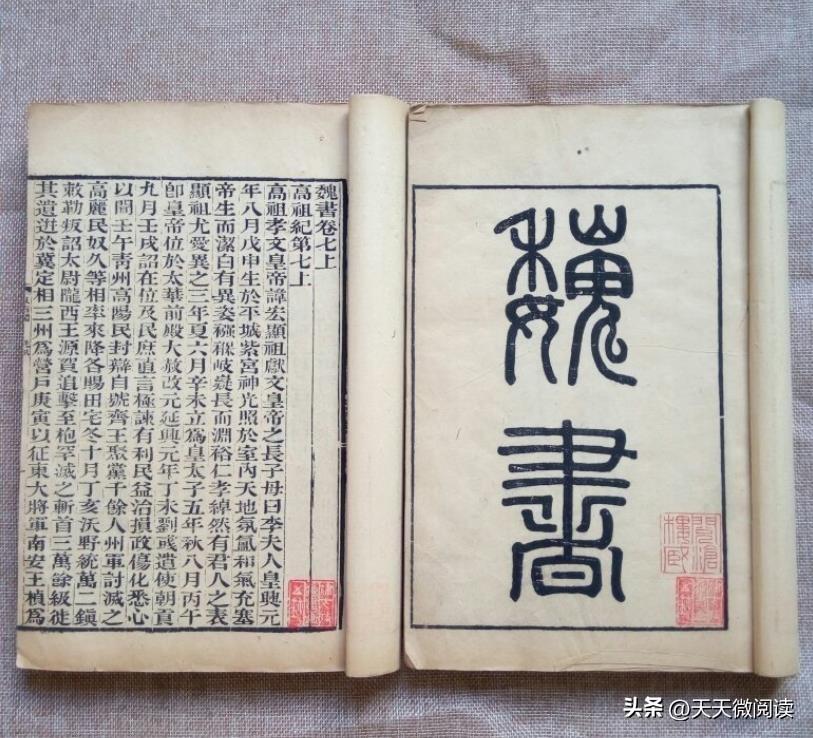 魏書
魏書卷七上
高祖紀第七上
高祖孝文皇帝諱宏顯祖獻文皇帝之長子母曰李夫人皇興元
年八月戊申生於平城紫宮神光照於室內天地氛氳和氣充塞
帝生而潔白有異姿襁褓岐嶷長而淵裕仁孝綽然有君人之表
顯祖尤愛異之三年夏六月辛未立爲皇太子五年秋八月丙午
卽皇帝位於太華前殿大赦改元延興元年丁未劉彧遣使朝貢
九月壬戌詔在位及民庶直言極諫有利民益治損政傷化悉心
以聞壬午青州高陽民封辯自號齊王聚黨千餘人州軍討滅之
高麗民奴久等相率來降各賜田宅冬十月丁亥沃野統萬二鎭
敕勒叛詔太尉隴西王源賀追擊至枹罕滅之斬首三萬餘級徙
其遺迸於冀定相三州爲營戶庚寅以征東大將軍南安王楨爲
头条 @天天微阅读